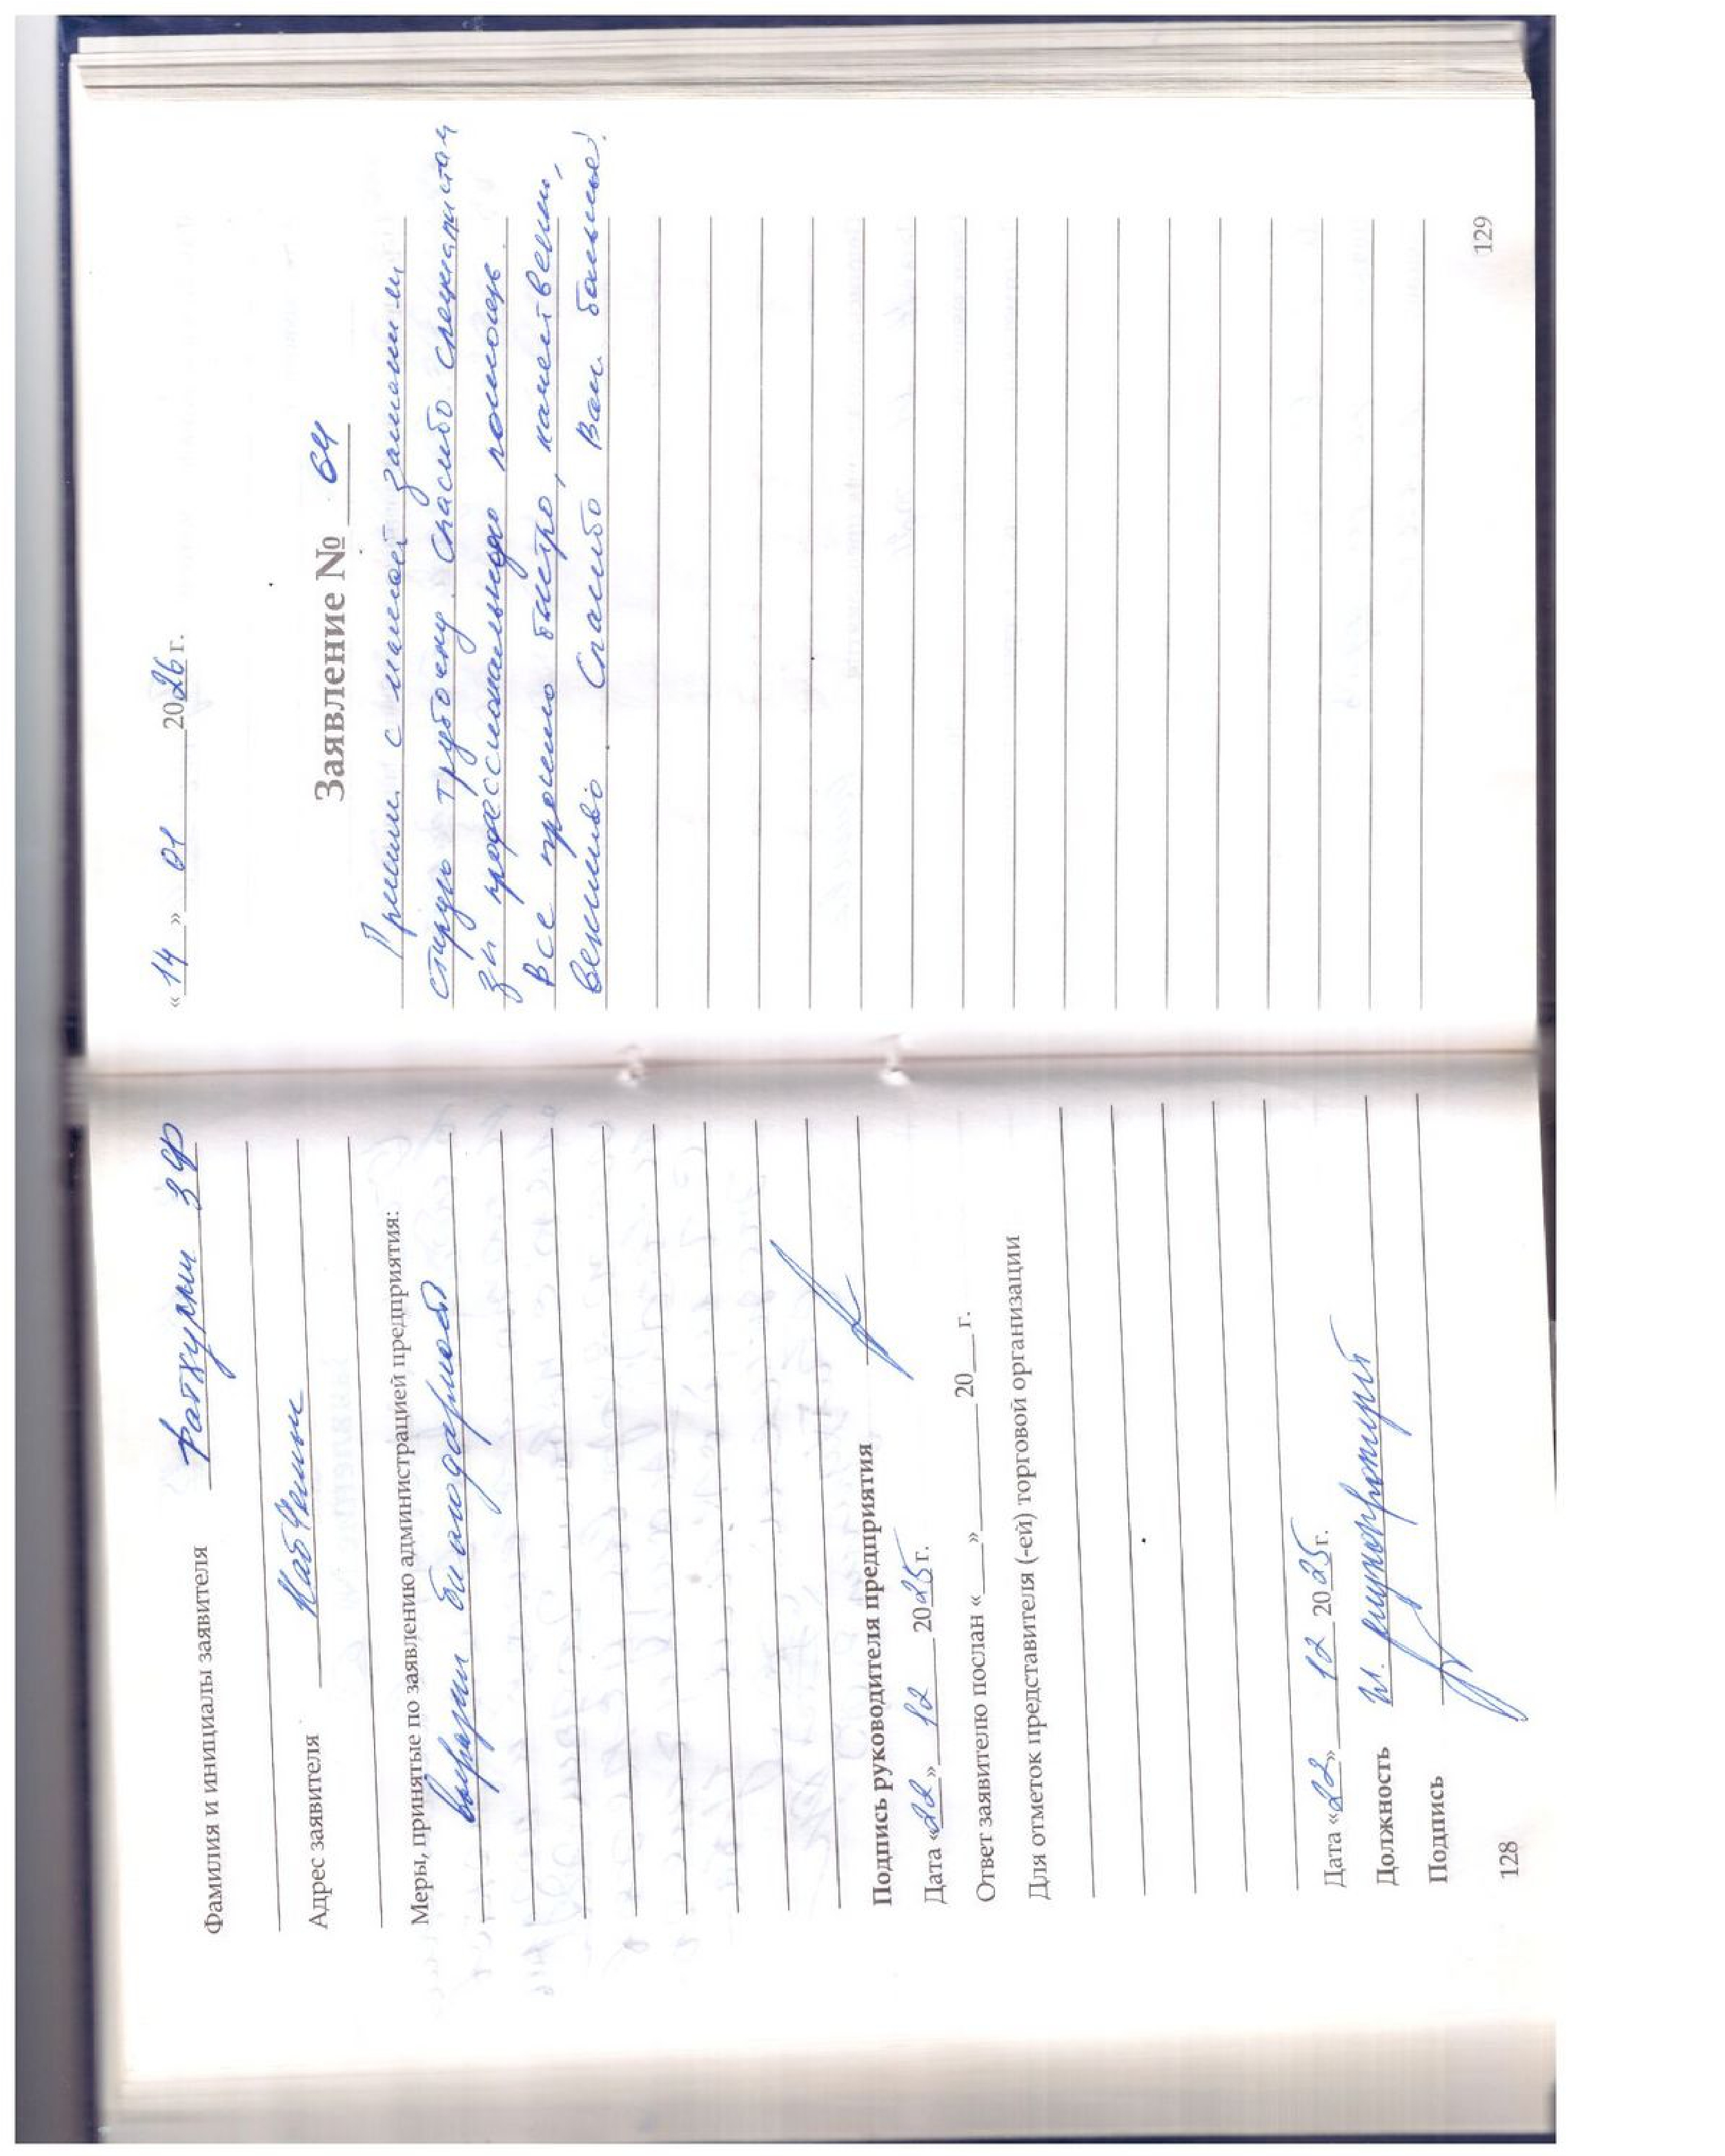 Фамилия и инициалы заявителя Фатхулин З Ф
Адрес заявителя Наб Челны
Меры, принятые по заявлению администрацией предприятия:
выразили благодарность
Подпись руководителя предприятия
Дата «22» 12 2025 г.
Ответ заявителю послан «___»________20___г.
Для отметок представителя (-ей) торговой организации
Дата «22» 12 2025 г.
Должность
Подпись
128
«14» 01 2026 г.
Заявление № 64
Пришли с мамой заменили
старую трубочку. Спасибо специалистам
за профессиональную помощь.
Все прошло быстро, качественно,
вежливо. Спасибо Вам большое!
129